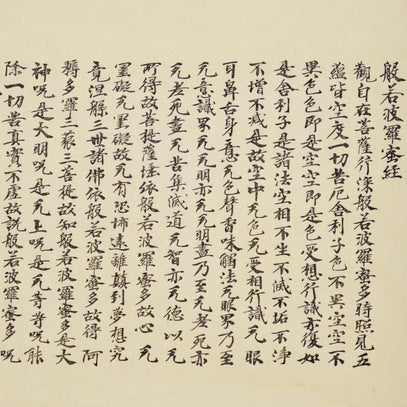 般若波羅蜜經
觀自在菩薩行深般若波羅蜜多時照見五
蘊皆空度一切苦厄舍利子色不異空空不
異色色即是空空即是色受想行識亦復如
是舍利子是諸法空相不生不滅不垢不淨
不增不減是故空中无色无受相行識无眼
耳鼻舌身意无色聲香味觸法无眼界乃至
无意識界无无明亦无无明盡乃至无老死亦
无老死盡无苦集滅道无智亦无德以无
所得故菩提薩埵依般若波羅蜜多故心无
罣礙无罣礙故无有恐怖遠離顛倒夢想究
竟涅槃三世諸佛依般若波羅蜜多故得阿
耨多羅三藐三菩提故知般若波羅蜜多是大
神呪是大明呪是无上呪是无等等呪能
除一切苦真實不虛故說般若波羅蜜多呪